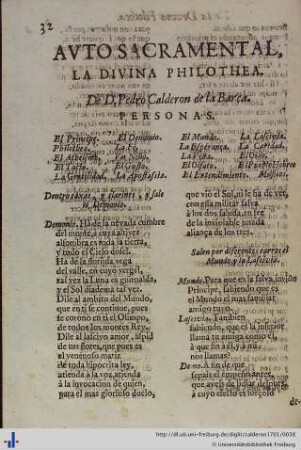 32
AVTO SACRAMENTAL,
LA DIVINA PHILOTHEA.
De D. Pedro Calderon de la Barca.
PERSONAS.
El Principe. El Demonio. El Mundo. La Lascivia.
Philothea. La Fè. La Esperança. La Caridad.
La Vista. El Oìdo.
El Gusto. El Olfato.
La Gentilidad. La Apostasia. El Entendimiento. Musicos.
Demonio. Ha de la nevada cumbre
del monte, à cuya altivez
alfombra es toda la tierra,
y todo el Cielo dosel.
Ha de la florida vega
del valle, en cuyo vergèl,
tal vez la luna es guirnalda,
y el Sol diadema tal vez.
Dile al ambito del Mundo,
que en ti se continue, pues
te coronò en ti el Olimpo,
de todos los montes Rey.
Dile al lascivo amor, aspid
de tus flores, que pues es
el venenoso matiz
de toda hipocrita ley,
atienda à la voz, atienda
à la invocacion de quien,
para el mas glorioso duelo,
que viò el Sol, ni le ha de ver,
con esta militar salva
à los dos saluda, en fee
de la inviolable jurada
aliança de los tres.
Salen por diferentes carros el
Mundo, y la Lascivia.
Mundo. Para que es la salva, invicto
Principe, sabiendo que es
el Mundo el mas familiar
amigo tuyo.
Lascivia. Tambien
sabiendo, que es la inferior
llama tu amor, còmo es,
à que fin assi, y à mi
nos llamas?
Demo. A fin de que
sepais el empeño antes,
que aveis de lidiar despues,
à cuyo efecto es forçoso
de-
http://dl.ub.uni-freiburg.de/diglit/calderon1701/0038
© Universitätsbibliothek Freiburg